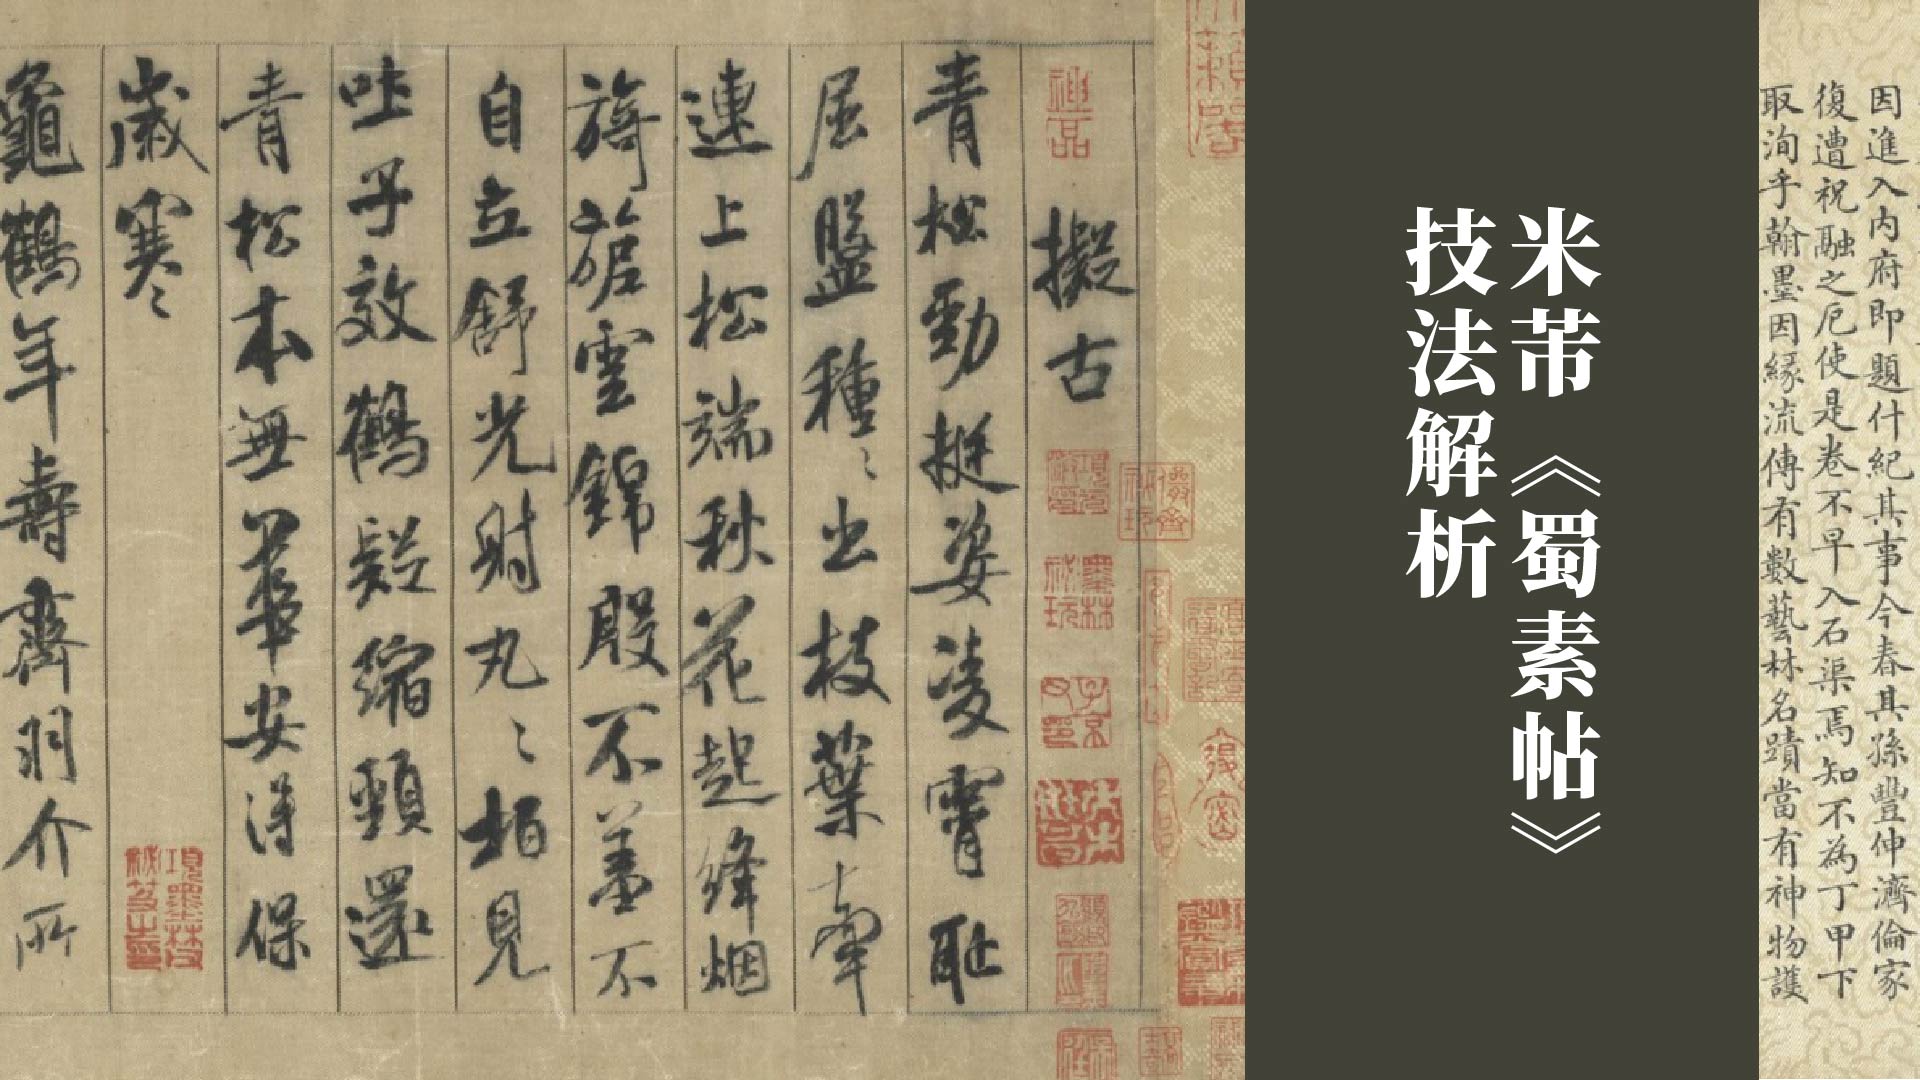 因進入内府即題什紀其事今春其孫豐仲濟倫家
復遭祝融之厄使是卷不早入石渠焉知不為丁甲下
取洵乎翰墨因緣流傳有數藝林名蹟當有神物護
米芾《蜀素帖》
技法解析
神品
擬古
墨林祕玩
子京父印
青松勁挺姿凌霄恥
屈盤種〻出枝葉牽
連上松端秋花起絳烟
旖旎雲錦殷不羞不
自立舒光射丸〻栢見
吐子效鶴疑縮頸還
青松本無華安得保
歲寒〻
項墨林父祕笈之印
龜鶴年壽齊羽介所